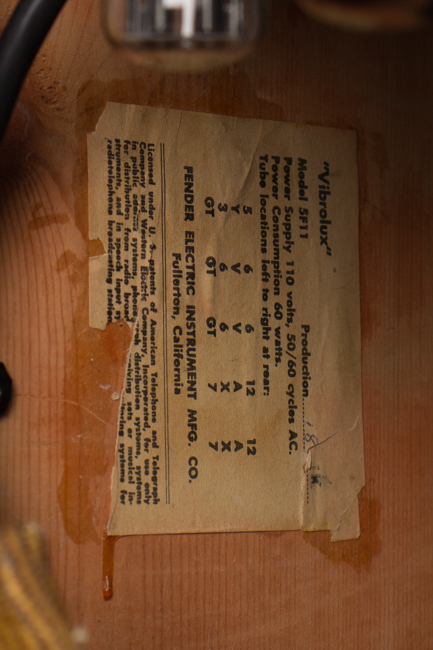 "Vibrolux"
Model 5F11 Production
Power Supply 110 volts, 50/60 cycles AC.
Power Consumption 60 watts.
Tube locations left to right at rear:
5 6 6 12 12
Y V V A A
3 6 6 X X
GT GT GT 7 7
FENDER ELECTRIC INSTRUMENT MFG. CO.
Fullerton, California
Licensed under U. S. patents of American Telephone and Telegraph
Company and Western Electric Company, Incorporated, for use only
in public address systems, distribution systems, systems
for distribution from radio broad sets or musical in-
struments, and in speech input systems for
radiotelephone broadcasting station